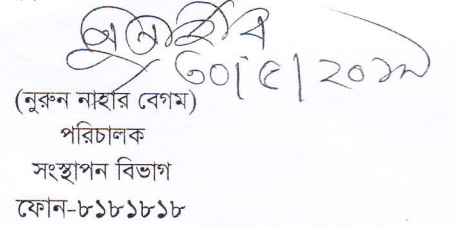 ৩০|৫|২০১৯
(নুরুন নাহার বেগম)
পরিচালক
সংস্থাপন বিভাগ
ফোন-৮১৮১৮১৮